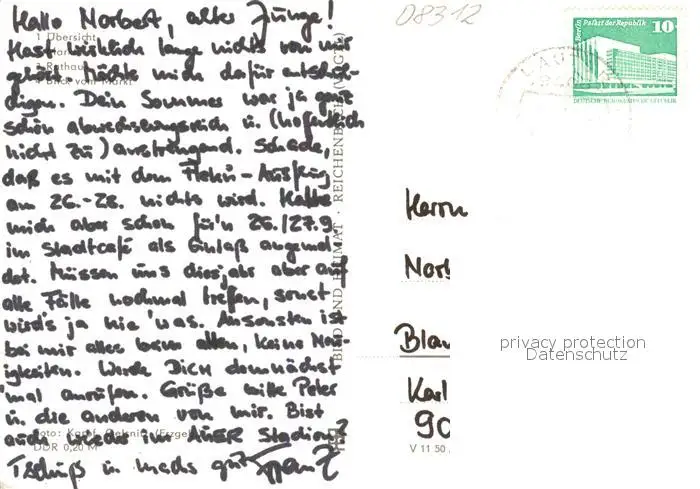 Hallo Norbert, alter Junge!
Hast wirklich lange nichts von mir
gehört. Möchte mich dafür entschul-
digen. Dein Sommer war ja ganz
schön abwechslungsreich u. (hoffentlich
nicht zu) anstrengend. Schade,
daß es mit dem Ausflug
am 26.-28. nichts wird. Hatte
mich aber schon für'n 26./27.9.
im Stadtcafé als Einlaß angemel-
det. Müssen uns dies Jahr aber auf
alle Fälle nochmal treffen, sonst
wird's ja nie 'was. Ansonsten ist
bei mir alles beim alten, keine Neu-
igkeiten. Werde Dich demnächst
'mal anrufen. Grüße bitte Peter
u. die anderen von mir. Bist
auch wieder im AUER Stadion?
Tschüß u machs gut
1 Übersicht
3 Rathaus
4 Blick vom Markt
DDR 0,20 M
BILD UND HEIMAT · REICHENBACH (VOGTL)
08312
Berlin, Palast der Republik
10
DEUTSCHE DEMOKRATISCHE REPUBLIK
Herrn
Norb
Blan
Karl
90
V 11 50
privacy protection
Datenschutz